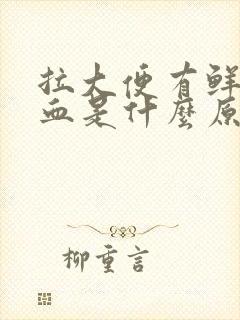 拉大便有鲜
血是什麼原
柳重言